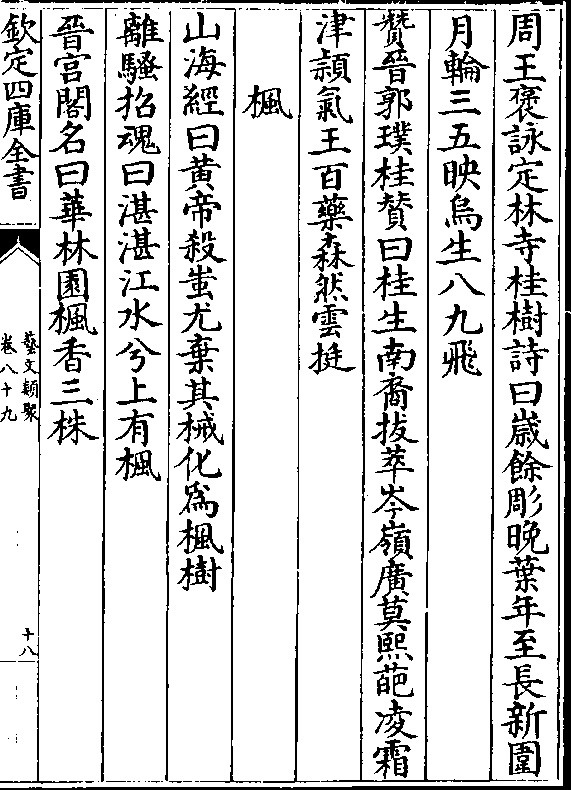 周王褒詠定林寺桂樹詩曰嵗餘彫晩葉年至長新圍
月輪三五映烏生八九飛
贊晉郭璞桂贊曰桂生南裔拔萃岑嶺廣莫熙葩凌霜
津頴氣王百藥森然雲挺
楓
山海經曰黄帝殺蚩尤棄其械化爲楓樹
離騷招魂曰湛湛江水兮上有楓
晉宫閣名曰華林園楓香三株
欽定四庫全書
藝文類聚
卷八十九
十八